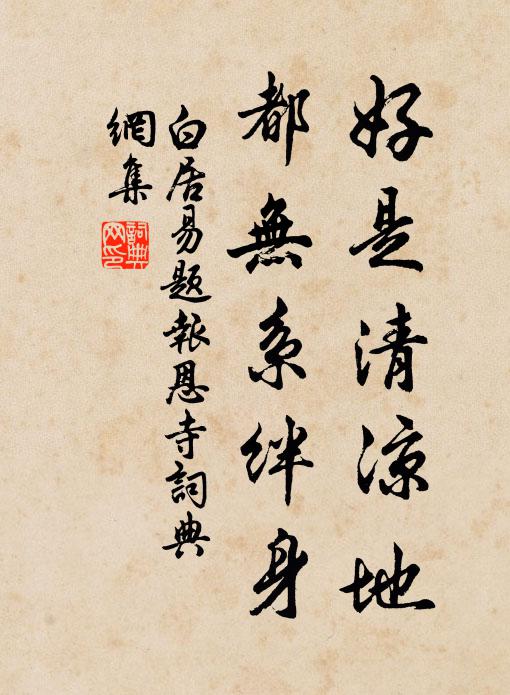 好是清涼地
都無系絆身
白居易題報恩寺詞典
網集
詞典
网印